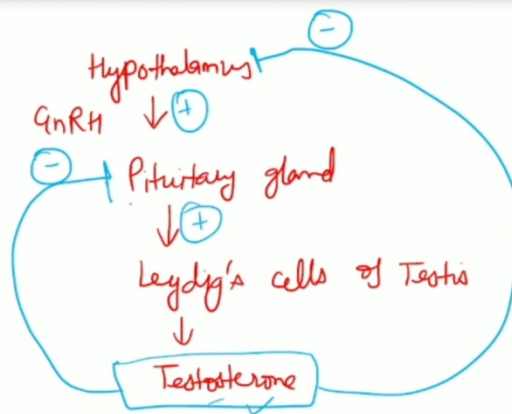 -
Hypothalamus
GnRH +
- Pituitary gland
+
Leydig's cells of Testis
Testosterone